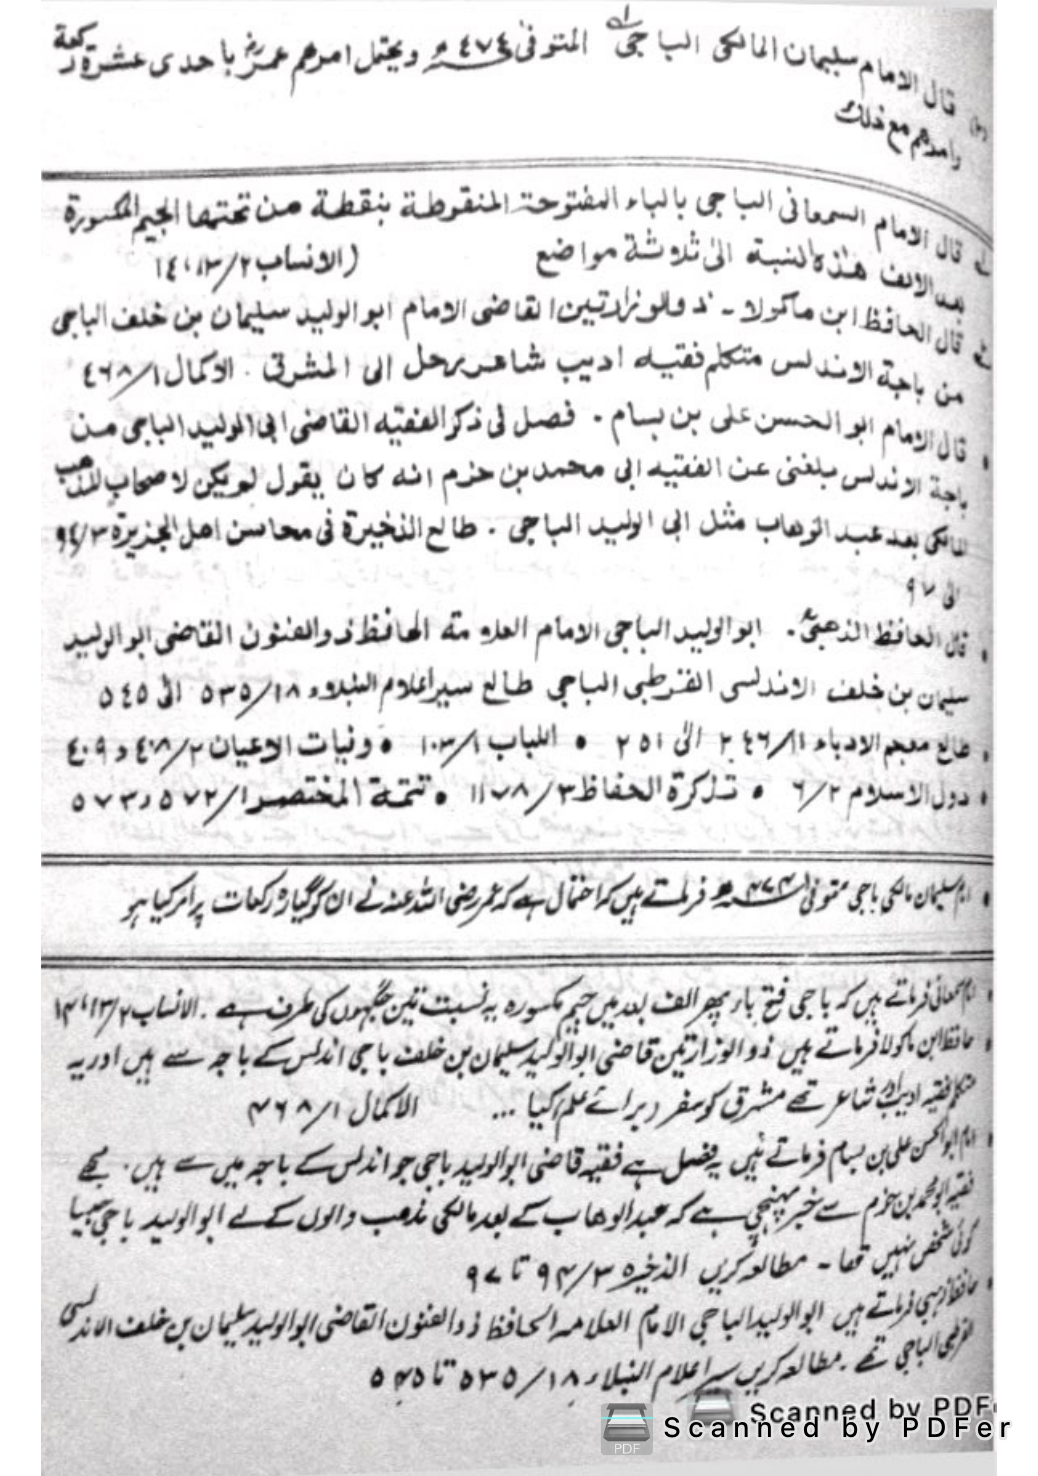 قال الامام سلیمان المالکی الباجی المتوفی ٤٧٤ھ ویحتمل امرھم عمرؓ باحدی عشرة رکعة
وامرھم مع ذلك
قال الامام السمعانی الباجی بالباء المفتوحة المنقوطة بنقطة من تحتھا الجیم المکسورة
بعد الالف ھذہ النسبة الیٰ ثلاثة مواضع (الانساب ٢/١٣،١٤
قال الحافظ ابن ماکولا ـ ذوالوزارتین القاضی الامام ابو الولید سلیمان بن خلف الباجی
من باجة الاندلس متکلم فقیہ ادیب شاعر رحل الی المشرق . الاکمال ١/٤٦٨
• قال الامام ابو الحسن علی بن بسام . فصل فی ذکر الفقیہ القاضی ابی الولید الباجی من
باجة الاندلس بلغنی عن الفقیہ ابی محمد بن حزم انہ کان یقول لم یکن لاصحاب المذھب
المالکی بعد عبد الوھاب مثل ابی الولید الباجی . طالع الذخیرة فی محاسن اھل الجزیرة ٣/٩٤
الی ٩٧
• قال الحافظ الذھبیؒ . ابو الولید الباجی الامام العلامة الحافظ ذوالفنون القاضی ابو الولید
سلیمان بن خلف الاندلسی القرطبی الباجی طالع سیر اعلام النبلاء ١٨/٥٣٥ الی ٥٤٥
• طالع معجم الادباء ١١/٢٤٦ الیٰ ٢٥١ • اللباب ١/١٠٣ • وفیات الاعیان ٢/٤٠٨ و ٤٠٩
• دول الاسلام ٢/٦ • تذکرة الحفاظ ٣/١١٧٨ • تتمة المختصر ١/٥٧٢، ٥٧٣
• امام سلیمان مالکی باجی متوفی ۴۷۴ھ فرماتے ہیں کہ احتمال ہے کہ عمر رضی اللہ عنہ نے ان کو گیارہ رکعات پر امر کیا ہو
• امام سمعانی فرماتے ہیں کہ باجی فتح باء پھر الف بعد میں جیم مکسورہ یہ نسبت تین جگہوں کی طرف ہے . الانساب ۲/۱۳،۱۴
• حافظ ابن ماکولا فرماتے ہیں ذوالوزارتین قاضی ابو الولید سلیمان بن خلف باجی اندلس کے باجہ سے ہیں اور یہ
متکلم فقیہ ادیب اور شاعر تھے مشرق کو سفر (برائے علم) کیا ... الاکمال ۱/۴۶۸
• امام ابو الحسن علی بن بسام فرماتے ہیں یہ فصل ہے فقیہ قاضی ابو الولید باجی جو اندلس کے باجہ میں سے ہیں . مجھے
فقیہ ابو محمد بن حزم سے خبر پہنچی ہے کہ عبد الوھاب کے بعد مالکی مذھب والوں کے لے ابو الولید باجی جیسا
کوئی شخص نہیں تھا ـ مطالعہ کریں الذخیرہ ۳/۹۴ تا ۹۷
• حافظ ذہبی فرماتے ہیں ابو الولید الباجی الامام العلامہ الحافظ ذوالفنون القاضی ابو الولید سلیمان بن خلف الاندلسی
القرطبی الباجی تھے . مطالعہ کریں سیر اعلام النبلاء ۱۸/۵۳۵ تا ۵۴۵
Scanned by PDF
Scanned by PDFer
PDF